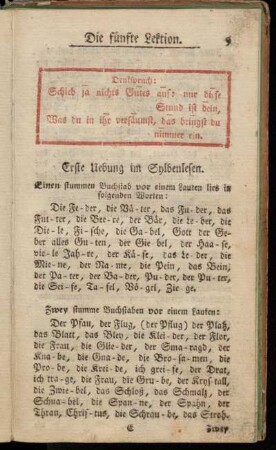 Die fünfte Lektion.
Denkspruch:
Schieb ja nichts Gutes auf: nur diese
Stund ist dein,
Was du in ihr versäumst, das bringst du
nimmer ein.
Erste Uebung im Sylbenlesen.
Einen stummen Buchstab vor einem Lauten lies in
folgenden Worten:
Die Fe-der, die Vä-ter, das Fu-der, das
Fut-ter, die Bee-re, der Bär, die Le-ber, die
Die-le, Fi-sche, die Ga-bel, Gott der Ge-
ber alles Gu-ten, der Gie-bel, der Haa-se,
vie-le Jah-re, der Kä-se, das Le-der, die
Mie-ne, der Na-me, die Pein, das Bein,
der Pa-ter, der Ba-der, der Pu-der, der Pu-ter,
die Sei-fe, Ta-fel, Vö-gel, Zie-ge.
Zwey stumme Buchstaben vor einem Lauten:
Der Pfau, der Flug, (der Pflug) der Platz,
das Blatt, das Bley, die Klei-der, der Flor,
die Frau, die Glie-der, der Sma-ragd, der
Kna-be, die Gna-de, die Bro-sa-men, die
Pro-be, die Krei-de, ich grei-fe, der Drat,
ich tra-ge, die Frau, die Gru-be, der Krys-tall,
die Zwie-bel, das Schloß, das Schmalz, der
Schna-bel, die Span-ne, der Spahn, der
Thran, Chris-tus, die Schrau-be, das Stroh.
E Zwey